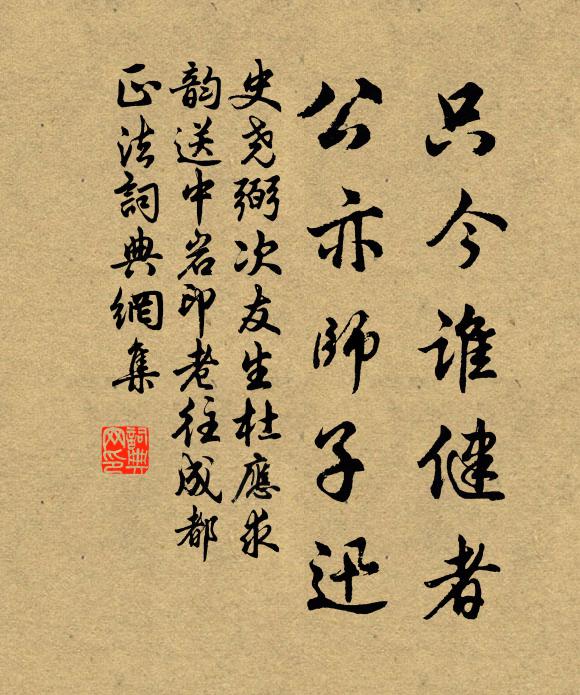 只今谁健者
公亦師子迅
史尧弼次友生杜應求
韵送中岩印老往成都
正法詞典網集
詞典网印